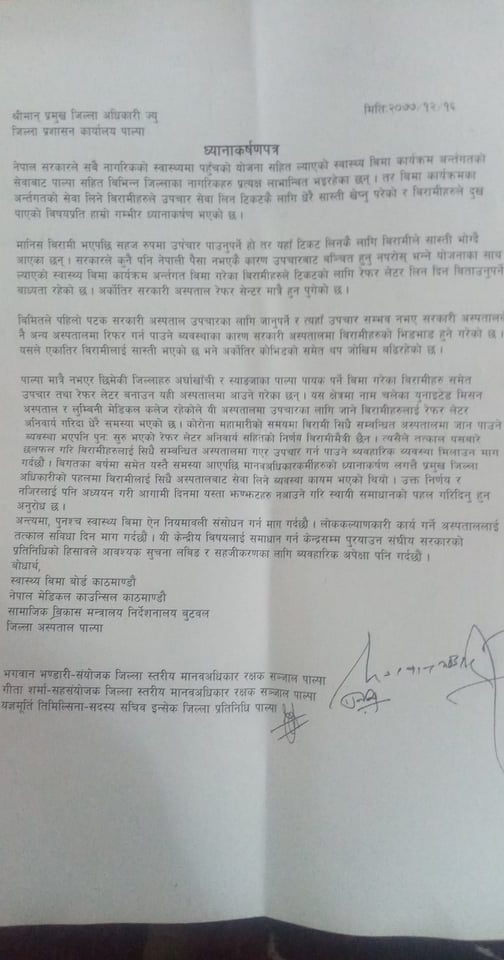 मिति:२०७७/१२/१६
श्रीमान् प्रमुख जिल्ला अधिकारी ज्यु
जिल्ला प्रशासन कार्यालय पाल्पा
ध्यानाकर्षणपत्र
नेपाल सरकारले सबै नागरिकको स्वास्थ्यमा पहुँचको योजना सहित ल्याएको स्वास्थ्य बिमा कार्यक्रम अर्न्तगतको
सेवाबाट पाल्पा सहित विभिन्न जिल्लाका नागरिकहरु प्रत्यक्ष लाभान्वित भइरहेका छन् । तर बिमा कार्यक्रमका
अर्न्तगतको सेवा लिने बिरामीहरुले उपचार सेवा लिन टिकटकै लागि धेरै सास्ती खेप्नु परेको र बिरामीहरुले दुख
पाएको विषयप्रति हाम्रो गम्भीर ध्यानाकर्षण भएको छ ।
मानिस बिरामी भएपछि सहज रुपमा उपचार पाउनुपर्ने हो तर यहाँ टिकट लिनकै लागि बिरामीले सास्ती भोग्दै
आएका छन् । सरकारले कुनै पनि नेपाली पैसा नभएकै कारण उपचारबाट बञ्चित हुनु नपरोस् भन्ने योजनाका साथ
ल्याएको स्वास्थ्य बिमा कार्यक्रम अर्न्तगत बिमा गरेका बिरामीहरुले टिकटको लागि रेफर लेटर लिन दिन बिताउनुपर्ने
बाध्यता रहेको छ । अर्कोतिर सरकारी अस्पताल रेफर सेन्टर मात्रै हुन पुगेको छ ।
बिमितले पहिलो पटक सरकारी अस्पताल उपचारका लागि जानुपर्ने र त्यहाँ उपचार सम्भव नभए सरकारी अस्पतालले
नै अन्य अस्पतालमा रिफर गर्न पाउने ब्यवस्थाका कारण सरकारी अस्पतालमा बिरामीहरुको भिडभाड हुने गरेको छ ।
यसले एकातिर बिरामीलाई सास्ती भएको छ भने अर्कोतिर कोभिडको समेत थप जोखिम बढिरहेको छ ।
पाल्पा मात्रै नभएर छिमेकी जिल्लाहरु अर्घाखाँची र स्याङजाका पाल्पा पायक पर्ने बिमा गरेका बिरामीहरु समेत
उपचार तथा रेफर लेटर बनाउन यही अस्पतालमा आउने गरेका छन् । यस क्षेत्रमा नाम चलेका युनाइटेड मिसन
अस्पताल र लुम्बिनी मेडिकल कलेज रहेकोले यी अस्पतालमा उपचारका लागि जाने बिरामीहरुलाई रेफर लेटर
अनिवार्य गरिदा धेरै समस्या भएको छ । कोरोना महामारीको समयमा बिरामी सिधै सम्बन्धित अस्पतालमा जान पाउने
ब्यवस्था भएपनि पुनः सुरु भएको रेफर लेटर अनिवार्य सहितको निर्णय बिरामीमैत्री छैन । त्यसैले तत्काल यसबारे
छलफल गरि बिरामीहरुलाई सिधै सम्बन्धित अस्पतालमा गएर उपचार गर्न पाउने ब्यवहारिक ब्यवस्था मिलाउन माग
गर्दछौं । बिगतका बर्षमा समेत यस्तै समस्या आएपछि मानवअधिकारकर्मीहरुको ध्यानाकर्षण लगत्तै प्रमुख जिल्ला
अधिकारीको पहलमा बिरामीलाई सिधै अस्पतालबाट सेवा लिने ब्यवस्था कायम भएको थियो । उक्त निर्णय र
नजिरलाई पनि अध्ययन गरी आगामी दिनमा यस्ता झण्झटहरु नआउने गरि स्थायी समाधानको पहल गरिदिनु हुन
अनुरोध छ ।
अन्त्यमा, पुनश्च स्वास्थ्य बिमा ऐन नियमावली संसोधन गर्न माग गर्दछौं । लोककल्याणकारी कार्य गर्ने अस्पताललाई
तत्काल सुविधा दिन माग गर्दछौं । यी केन्द्रीय बिषयलाई समाधान गर्न केन्द्रसम्म पुरयाउन संघीय सरकारको
प्रतिनिधिको हिसावले आवश्यक सुचना लविङ र सहजीकरणका लागि ब्यवहारिक अपेक्षा पनि गर्दछौं ।
बोधार्थ,
स्वास्थ्य बिमा बोर्ड काठमाण्डौ
नेपाल मेडिकल काउन्सिल काठमाण्डौ
सामाजिक बिकास मन्त्रालय निर्देशनालय बुटवल
जिल्ला अस्पताल पाल्पा
भगवान भण्डारी-संयोजक जिल्ला स्तरीय मानवअधिकार रक्षक सञ्जाल पाल्पा
गीता शर्मा-सहसंयोजक जिल्ला स्तरीय मानवअधिकार रक्षक सञ्जाल पाल्पा
यज्ञमूर्ति तिमिल्सिना-सदस्य सचिव इन्सेक जिल्ला प्रतिनिधि पाल्पा